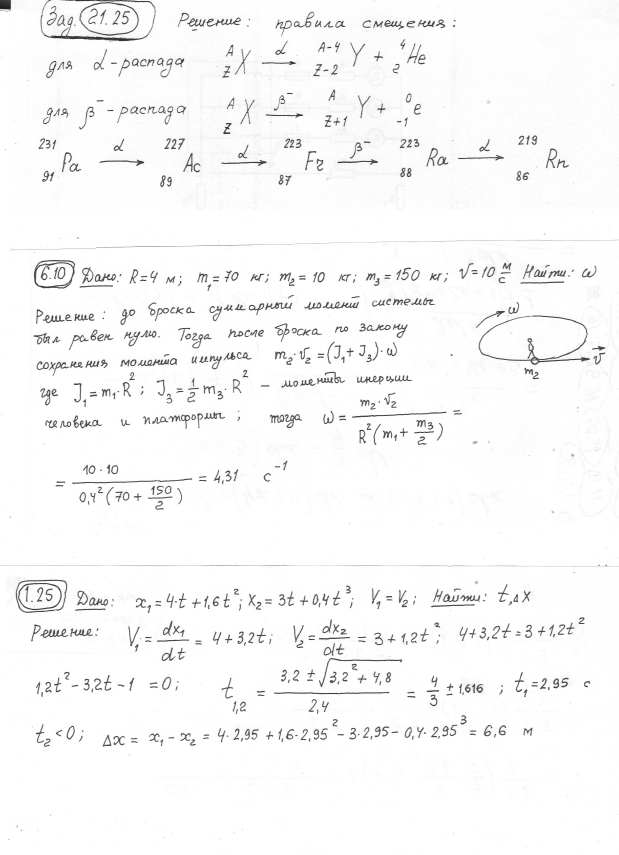 Зад. 21.25 Решение: правила смещения:
для α-распада ᴬ_Z X →(α) ᴬ⁻⁴_Z₋₂ Y + ⁴₂He
для β⁻-распада ᴬ_Z X →(β⁻) ᴬ_Z₊₁ Y + ⁰₋₁e
²³¹₉₁Pa →(α) ²²⁷₈₉Ac →(α) ²²³₈₇Fr →(β⁻) ²²³₈₈Ra →(α) ²¹⁹₈₆Rn
6.10 Дано: R=4 м; m₁=70 кг; m₂=10 кг; m₃=150 кг; V=10 м/с Найти: ω
Решение: до броска суммарный момент системы
был равен нулю. Тогда после броска по закону
сохранения момента импульса m₂·V₂=(J₁+J₃)·ω
где J₁=m₁·R²; J₃=1/2 m₃·R² – моменты инерции
человека и платформы; тогда ω = m₂·V₂ / R²(m₁+m₃/2) =
= 10·10 / 0,4²(70+150/2) = 4,31 с⁻¹
ω
V
m₂
1.25 Дано: x₁=4·t+1,6t²; x₂=3t+0,4t³; V₁=V₂; Найти: t, Δx
Решение: V₁=dx₁/dt=4+3,2t; V₂=dx₂/dt=3+1,2t²; 4+3,2t=3+1,2t²
1,2t²-3,2t-1=0; t₁,₂ = (3,2±√(3,2²+4,8))/2,4 = 4/3 ± 1,616; t₁=2,95 с
t₂<0; Δx = x₁-x₂ = 4·2,95+1,6·2,95²-3·2,95-0,4·2,95³=6,6 м